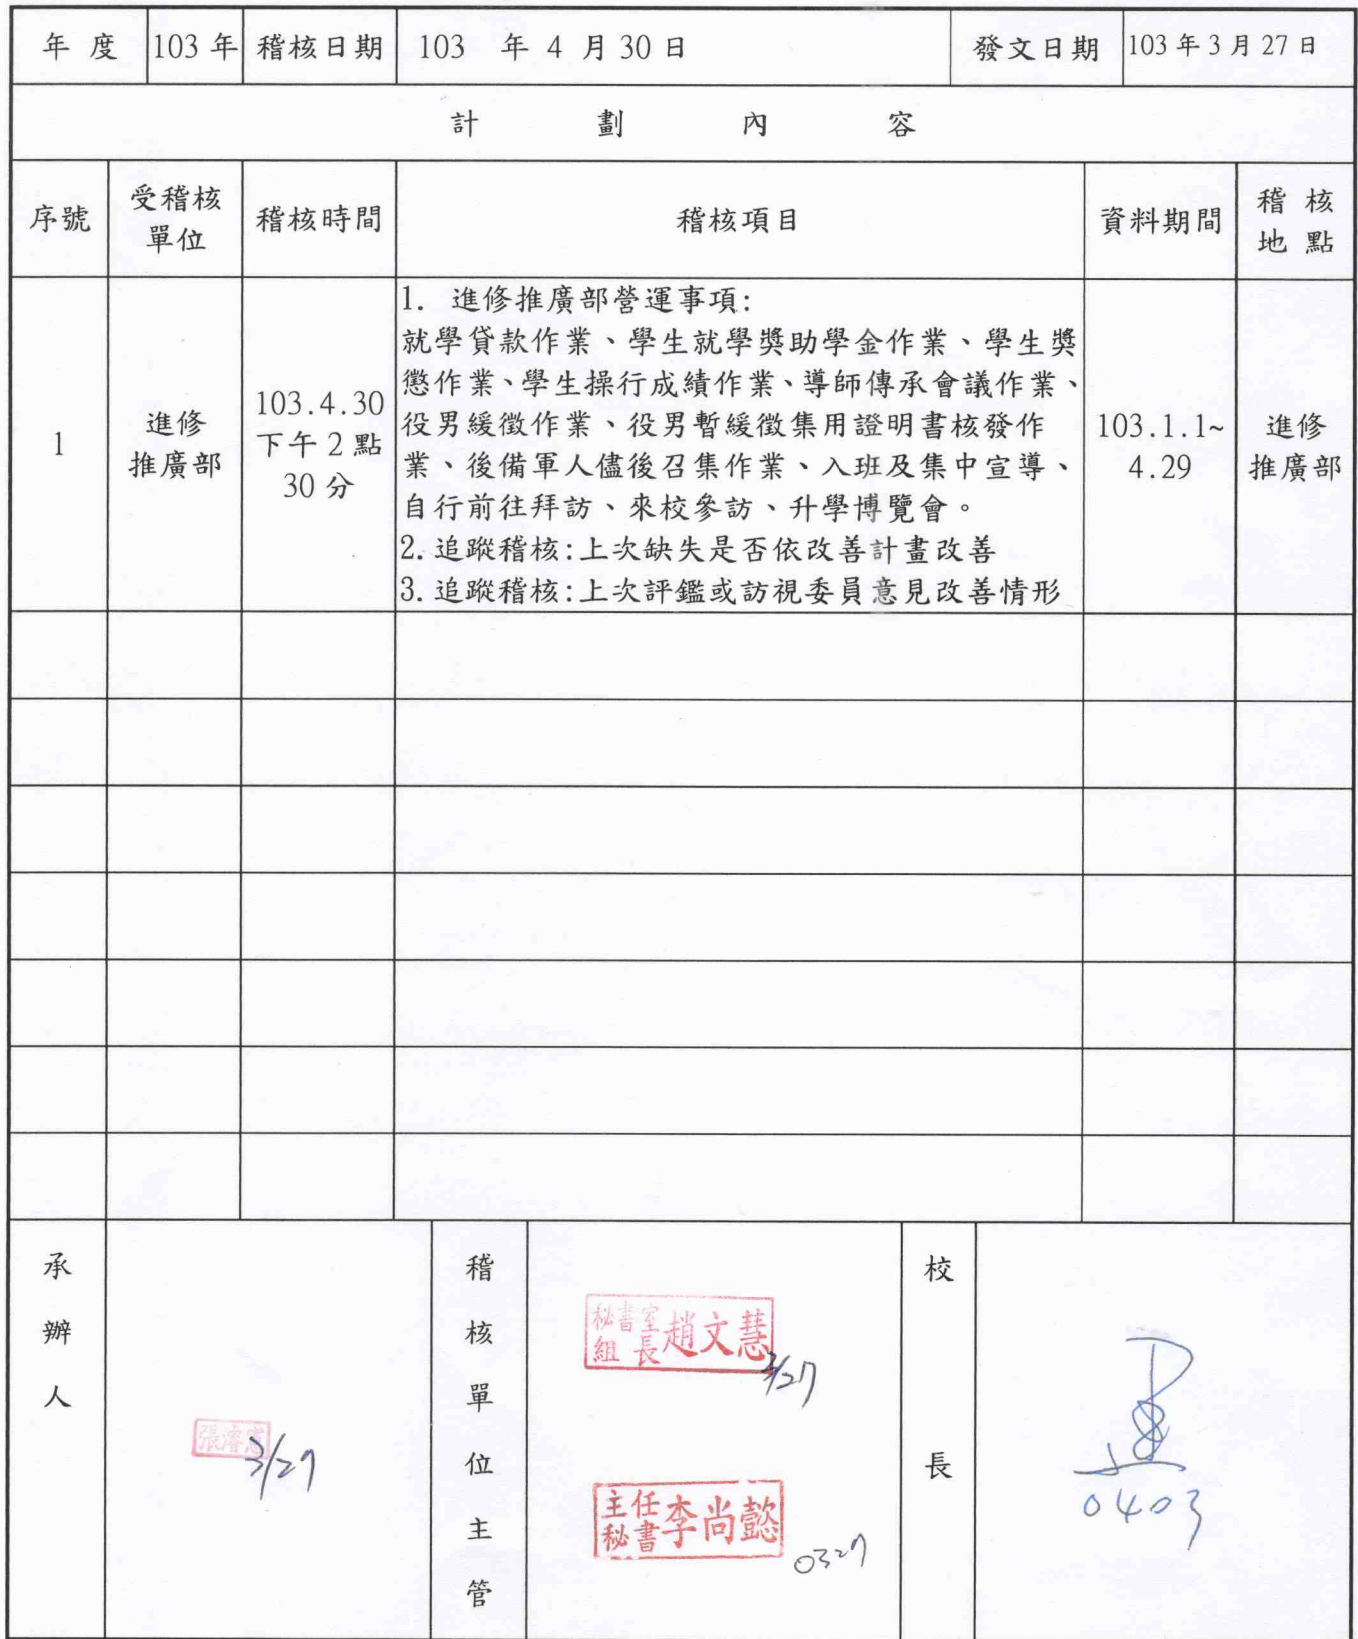 年 度 103 年 稽核日期 103 年 4 月 30 日 發文日期 103 年 3 月 27 日
計 劃 內 容
序號 受稽核單位 稽核時間 稽核項目 資料期間 稽核地點
1
進修
推廣部
103.4.30
下午 2 點
30 分
1. 進修推廣部營運事項:
就學貸款作業、學生就學獎助學金作業、學生獎
懲作業、學生操行成績作業、導師傳承會議作業、
役男緩徵作業、役男暫緩徵集用證明書核發作
業、後備軍人儘後召集作業、入班及集中宣導、
自行前往拜訪、來校參訪、升學博覽會。
2.追蹤稽核:上次缺失是否依改善計畫改善
3.追蹤稽核:上次評鑑或訪視委員意見改善情形
103.1.1~
4.29
進修
推廣部
承辦人
張濬憲
3/27
稽核單位主管
秘書室
組長 趙文慧
3/27
主任
秘書 李尚懿
0327
校長
0403